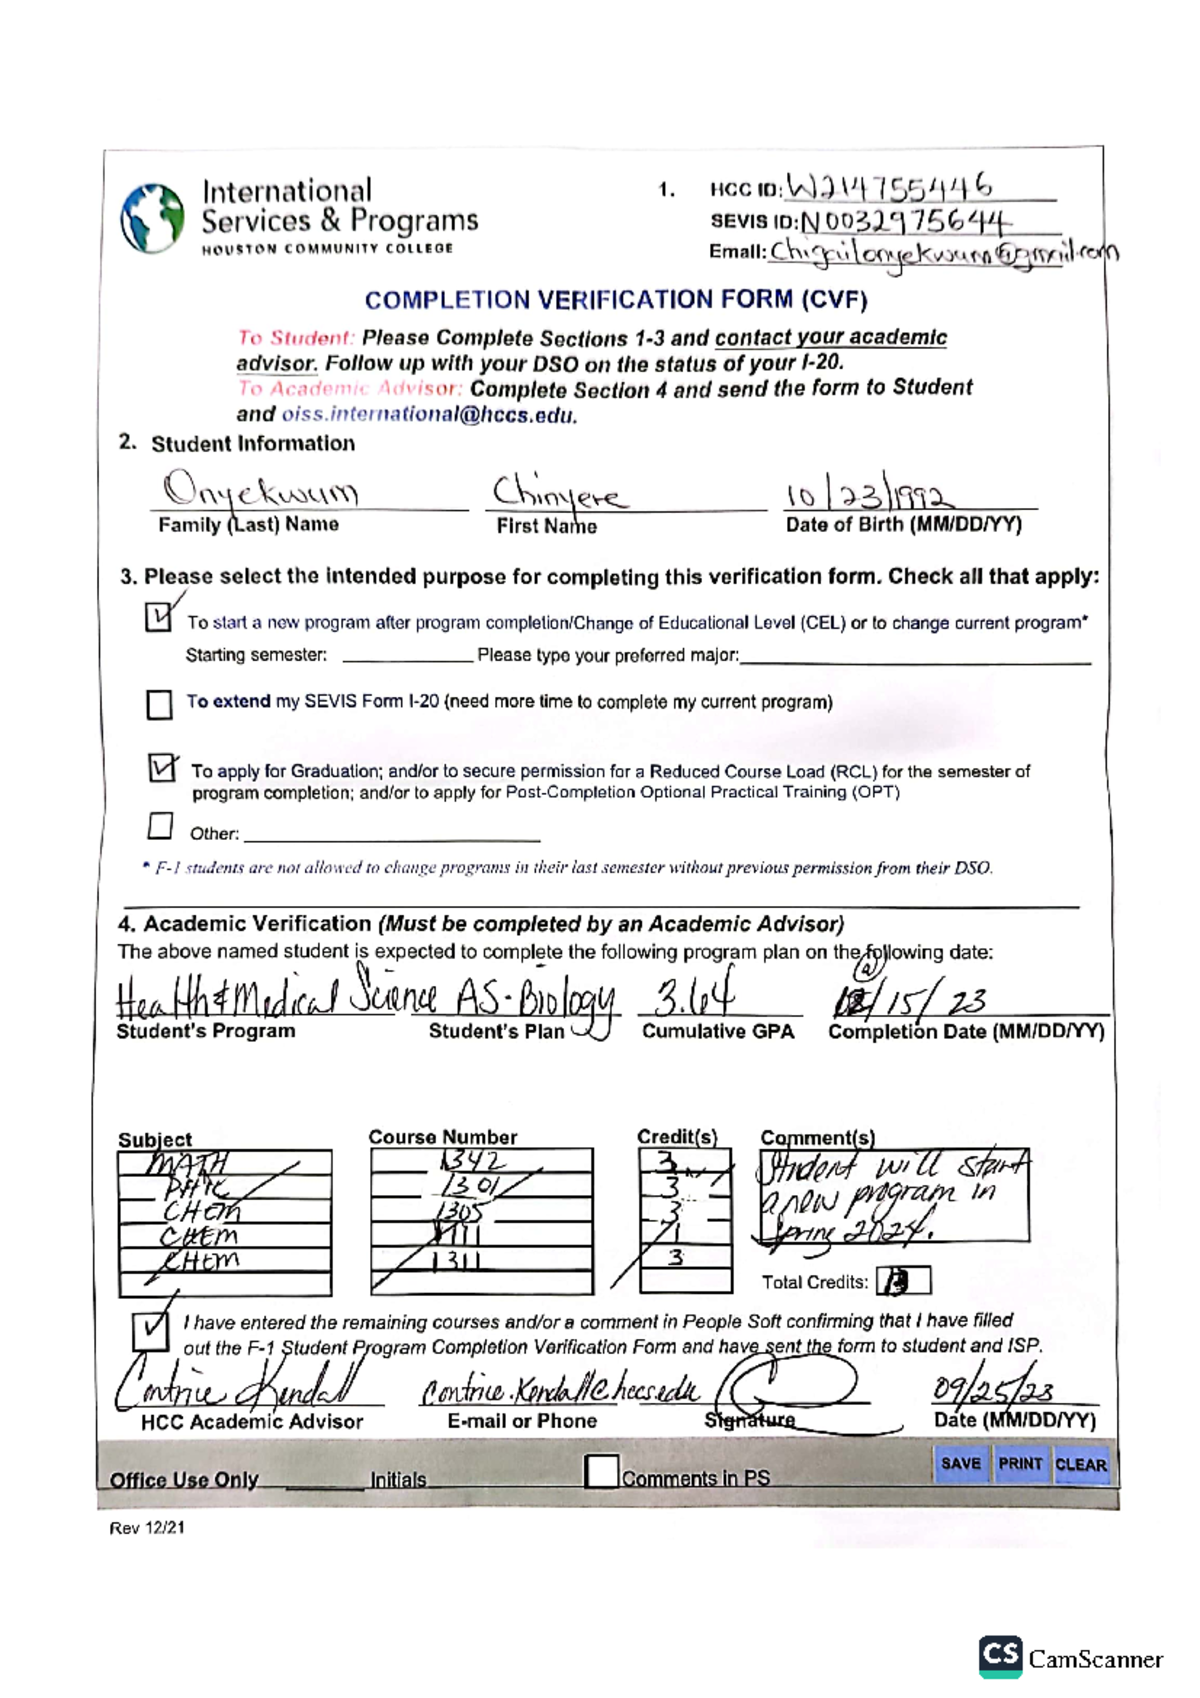 International
Services & Programs
HOUSTON COMMUNITY COLLEGE
1. HCC ID: W214755446
SEVIS ID: N0032975644
Email: Chigailonyekwum@gmail.com
COMPLETION VERIFICATION FORM (CVF)
To Student: Please Complete Sections 1-3 and contact your academic
advisor. Follow up with your DSO on the status of your I-20.
To Academic Advisor: Complete Section 4 and send the form to Student
and oiss.international@hccs.edu.
2. Student Information
Onyekwum Chinyere 10/23/1992
Family (Last) Name First Name Date of Birth (MM/DD/YY)
3. Please select the intended purpose for completing this verification form. Check all that apply:
To start a new program after program completion/Change of Educational Level (CEL) or to change current program*
Starting semester: Please type your preferred major:
To extend my SEVIS Form I-20 (need more time to complete my current program)
To apply for Graduation; and/or to secure permission for a Reduced Course Load (RCL) for the semester of
program completion; and/or to apply for Post-Completion Optional Practical Training (OPT)
Other:
* F-1 students are not allowed to change programs in their last semester without previous permission from their DSO.
4. Academic Verification (Must be completed by an Academic Advisor)
The above named student is expected to complete the following program plan on the following date:
Health & Medical Science AS-Biology 3.64 12/15/23
Student's Program Student's Plan Cumulative GPA Completion Date (MM/DD/YY)
Subject Course Number Credit(s) Comment(s)
MATH 1342 3 Student will start
1301 3 a new program in
CHEM 1305 3 Spring 2024.
CHEM 1
CHEM 1311 3
Total Credits:
I have entered the remaining courses and/or a comment in People Soft confirming that I have filled
out the F-1 Student Program Completion Verification Form and have sent the form to student and ISP.
Contrice Kendall Contrice.Kendall@hccs.edu 09/25/23
HCC Academic Advisor E-mail or Phone Signature Date (MM/DD/YY)
SAVE PRINT CLEAR
Office Use Only Initials Comments in PS
Rev 12/21
CS CamScanner